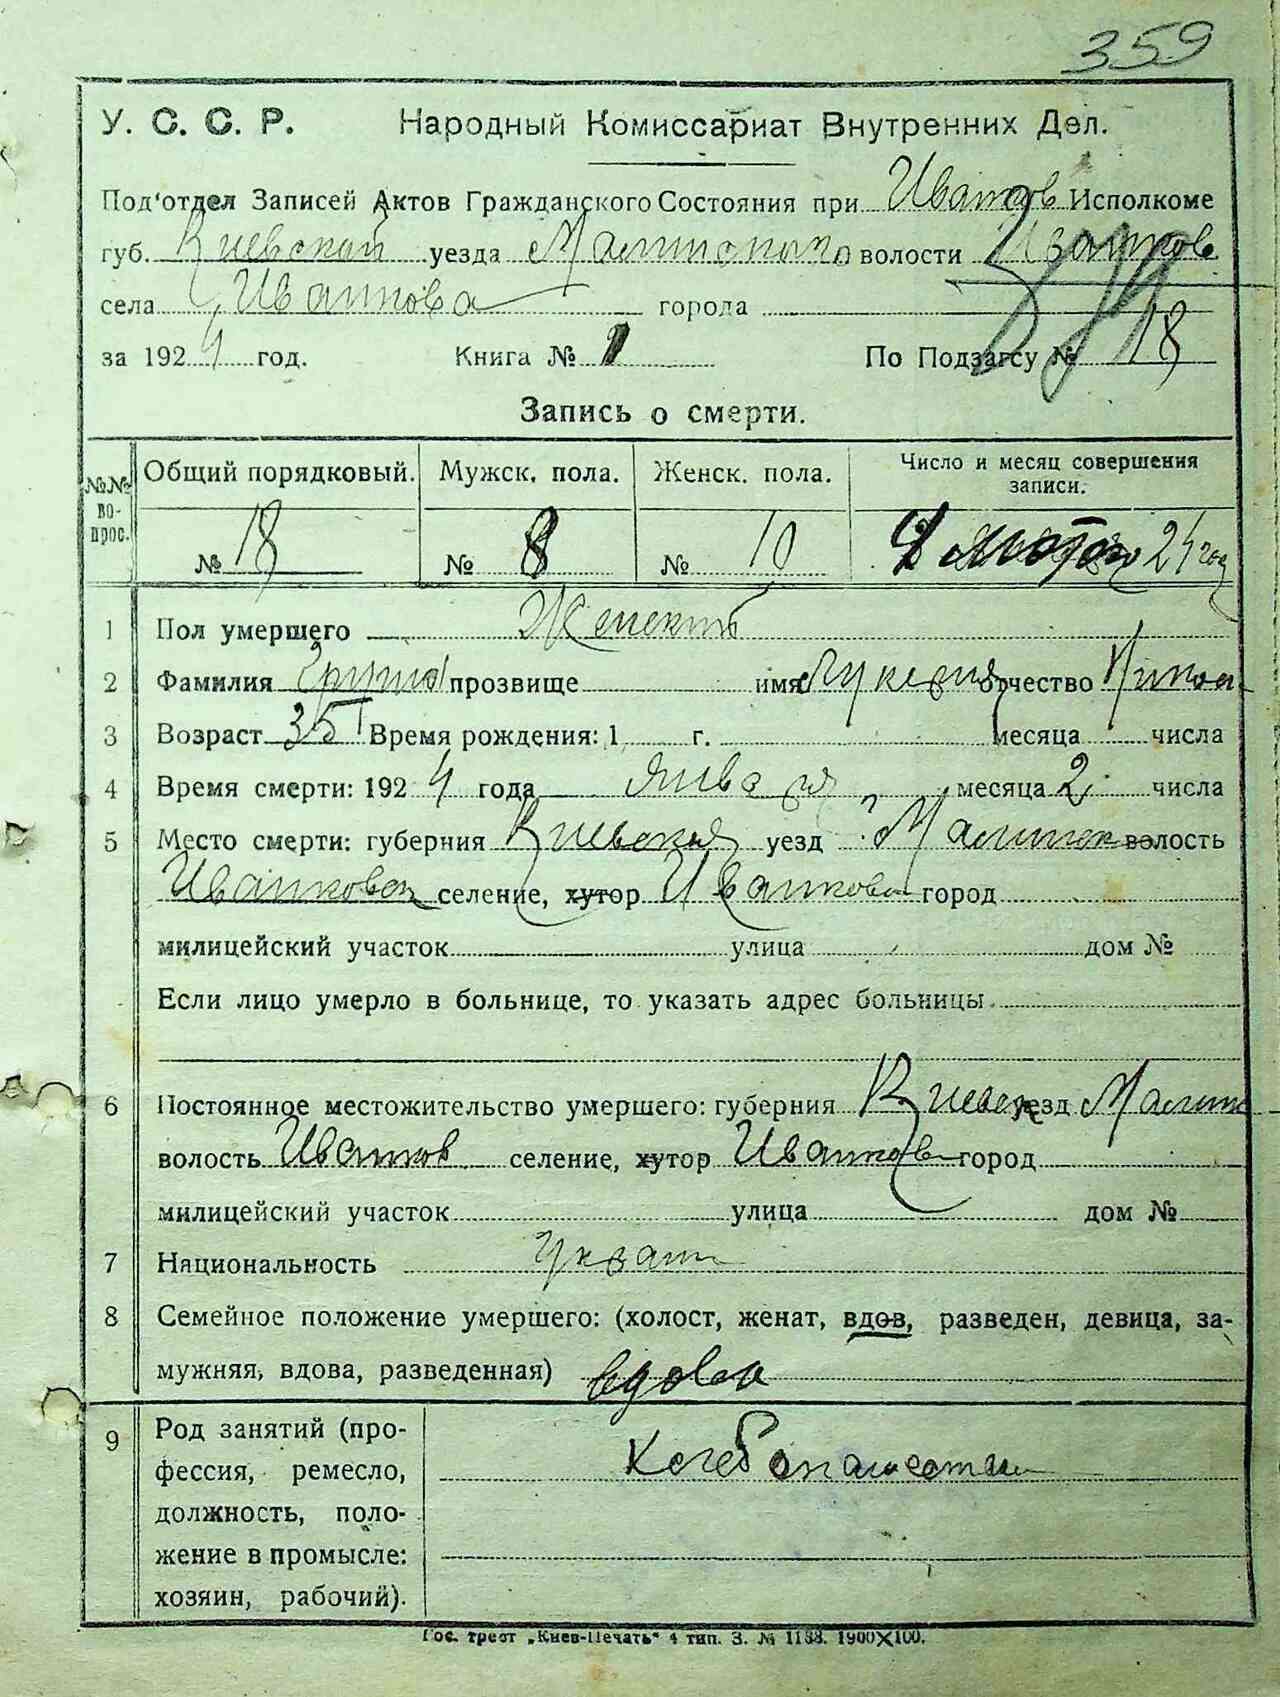 359
У. С. С. Р. Народный Комиссариат Внутренних Дел.
Под'отдел Записей Актов Гражданского Состояния при Иванков Исполкоме
губ. Киевской уезда Малинского волости Иванков
села Иванкова города
за 1924 год. Книга № 1 По Подзагсу № 18
Запись о смерти.
№№ вопрос. Общий порядковый. Мужск. пола. Женск. пола. Число и месяц совершения записи.
№ 18 № 8 № 10 лютого 24 год
1 Пол умершего Женский
2 Фамилия прозвище имя Лукерия отчество
3 Возраст 35 Время рождения: 1 г. месяца числа
4 Время смерти: 1924 года января месяца 2 числа
5 Место смерти: губерния Киевская уезд Малинск волость
Иванковск селение, хутор Иванков город
милицейский участок улица дом №
Если лицо умерло в больнице, то указать адрес больницы
6 Постоянное местожительство умершего: губерния Киевск уезд Малин
волость Иванков селение, хутор Иванков город
милицейский участок улица дом №
7 Национальность Украин
8 Семейное положение умершего: (холост, женат, вдов, разведен, девица, за-
мужняя, вдова, разведенная) вдова
9 Род занятий (про-
фессия, ремесло,
должность, поло-
жение в промысле:
хозяин, рабочий).
Гос. трест „Киев-Печать" 4 тип. З. № 1188. 1900X100.